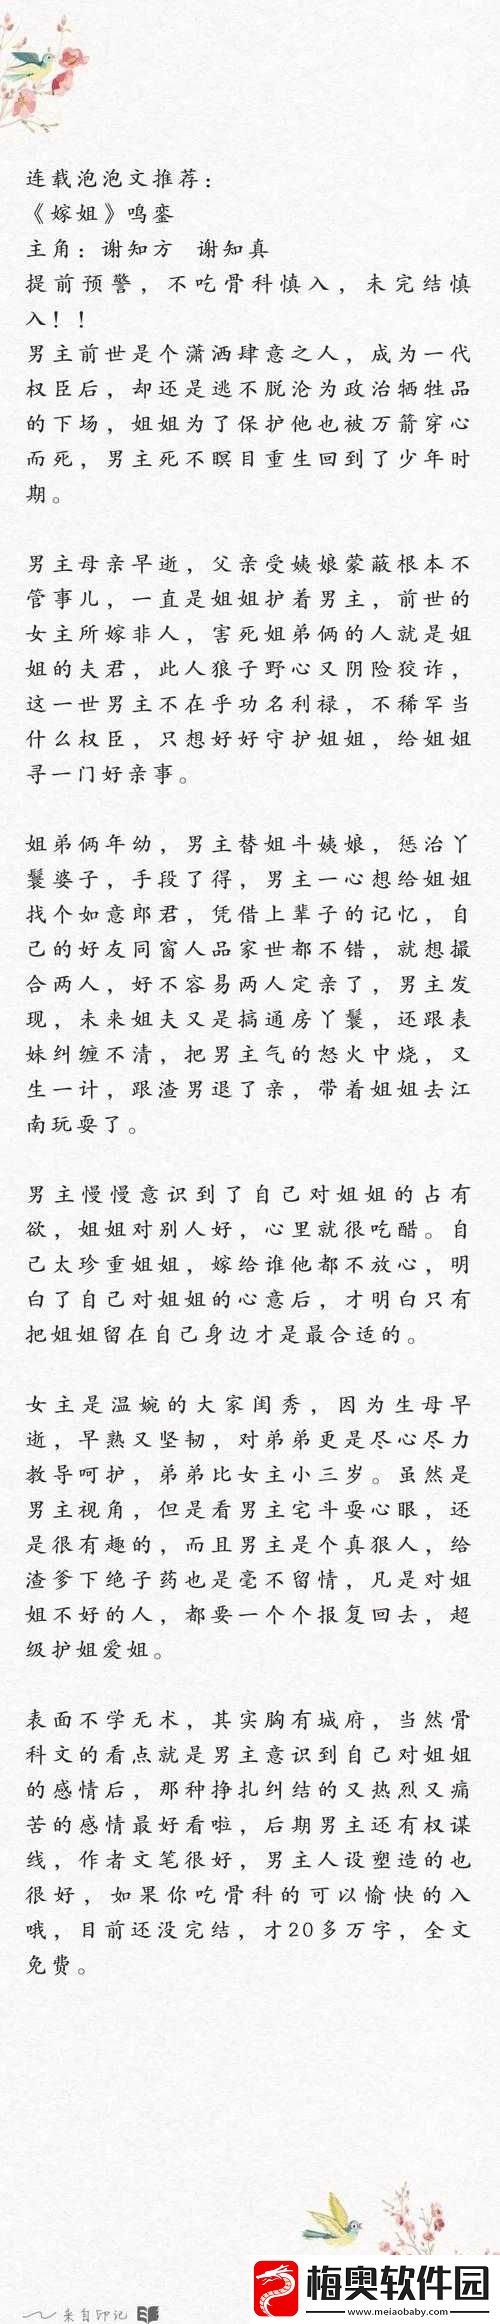 连载泡泡文推荐：
《嫁姐》鸣銮
主角：谢知方 谢知真
提前预警，不吃骨科慎入，未完结慎
入！！
男主前世是个潇洒肆意之人，成为一代
权臣后，却还是逃不脱沦为政治牺牲品
的下场，姐姐为了保护他也被万箭穿心
而死，男主死不瞑目重生回到了少年时
期。
男主母亲早逝，父亲受姨娘蒙蔽根本不
管事儿，一直是姐姐护着男主，前世的
女主所嫁非人，害死姐弟俩的人就是姐
姐的夫君，此人狼子野心又阴险狡诈，
这一世男主不在乎功名利禄，不稀罕当
什么权臣，只想好好守护姐姐，给姐姐
寻一门好亲事。
姐弟俩年幼，男主替姐斗姨娘，惩治丫
鬟婆子，手段了得，男主一心想给姐姐
找个如意郎君，凭借上辈子的记忆，自
己的好友同窗人品家世都不错，就想撮
合两人，好不容易两人定亲了，男主发
现，未来姐夫又是搞通房丫鬟，还跟表
妹纠缠不清，把男主气的怒火中烧，又
生一计，跟渣男退了亲，带着姐姐去江
南玩耍了。
男主慢慢意识到了自己对姐姐的占有
欲，姐姐对别人好，心里就很吃醋。自
己太珍重姐姐，嫁给谁他都不放心，明
白了自己对姐姐的心意后，才明白只有
把姐姐留在自己身边才是最合适的。
女主是温婉的大家闺秀，因为生母早
逝，早熟又坚韧，对弟弟更是尽心尽力
教导呵护，弟弟比女主小三岁。虽然是
男主视角，但是看男主宅斗耍心眼，还
是很有趣的，而且男主是个真狠人，给
渣爹下绝子药也是毫不留情，凡是对姐
姐不好的人，都要一个个报复回去，超
级护姐爱姐。
表面不学无术，其实胸有城府，当然骨
科文的看点就是男主意识到自己对姐姐
的感情后，那种挣扎纠结的又热烈又痛
苦的感情最好看啦，后期男主还有权谋
线，作者文笔很好，男主人设塑造的也
很好，如果你吃骨科的可以愉快的入
哦，目前还没完结，才20多万字，全文
免费。
来自印记
梅奥软件园
www.meiaobaby.com